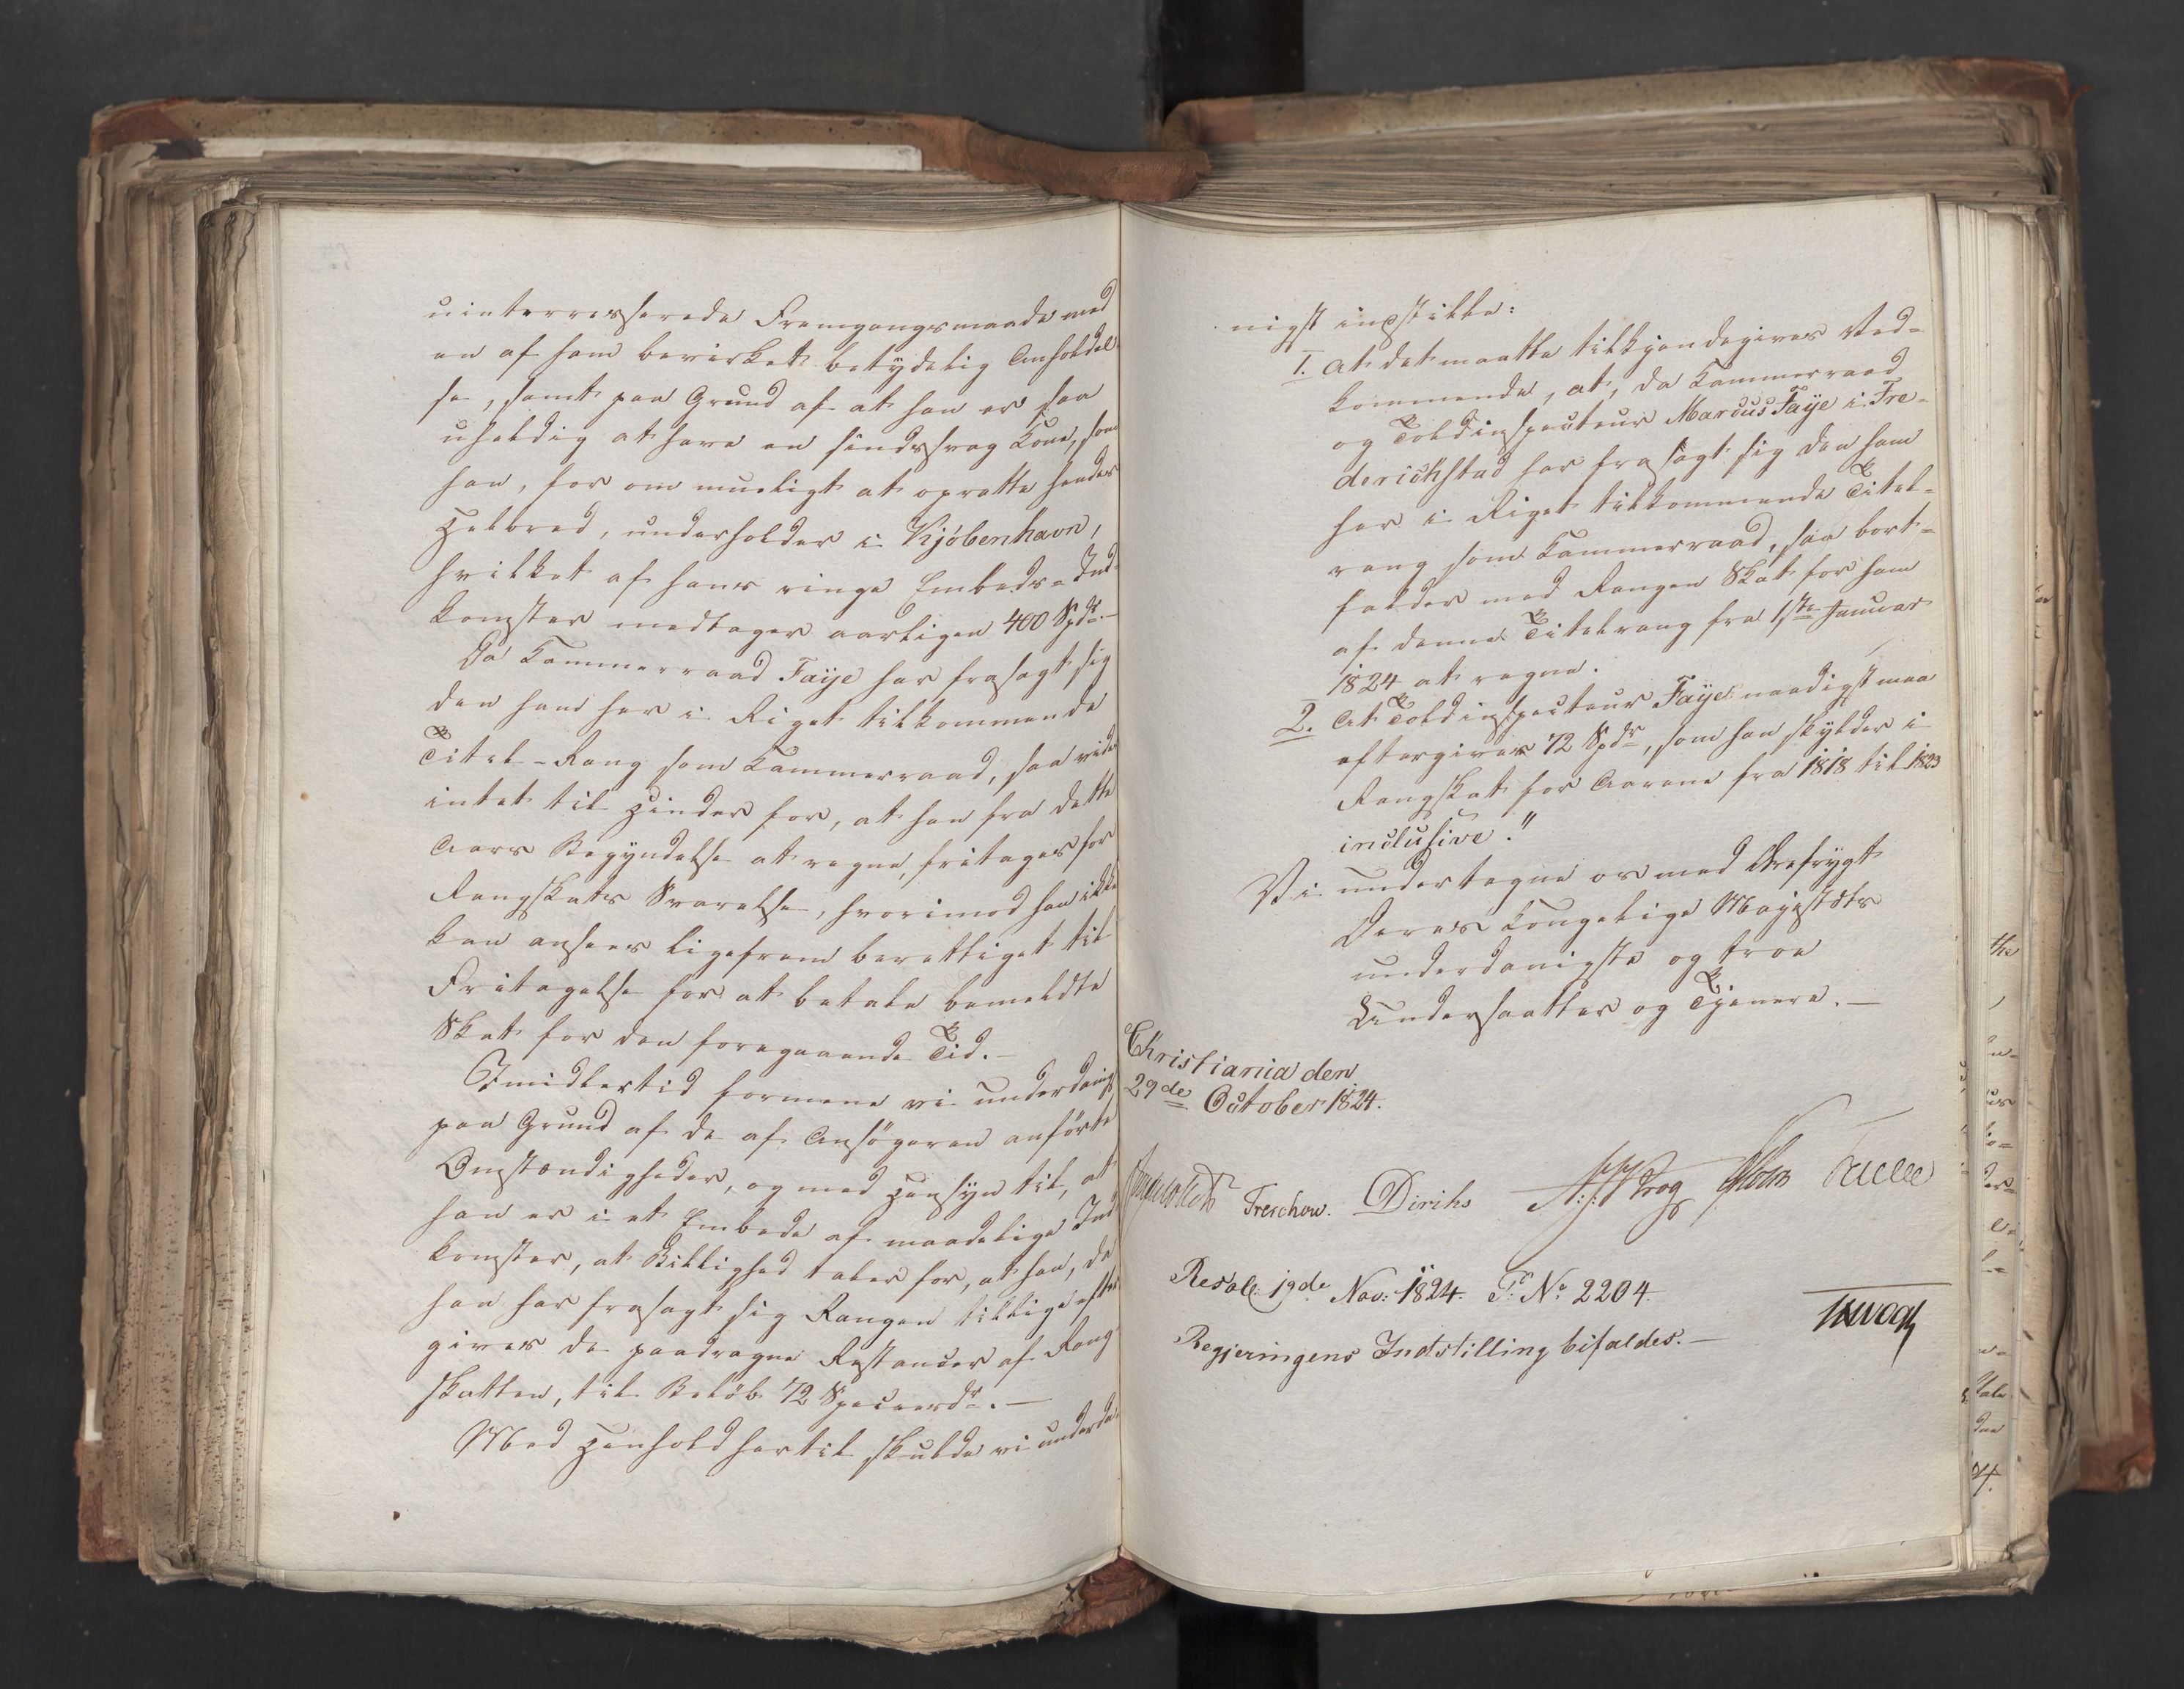 uinterresserede Fremgangsmaade ved
en af ham bevirket betydelig Anholdel-
se, samt paa Grund af at han er saa
uheldig at have en sindssvag Kone, som
han, for om mueligt at oprette hendes
Helbred, underholder i Kjöbenhavn,
hvilket af hans ringe Embeds-Ind-
komster medtager aarligen 400 Spdr.-
Da Kammerraad Faije har frasagt sig
den ham her i Riget tilkommende
Titel-Rang som Kammerraad, saa vides
intet til Hinder for, at han fra dette
Aars Begyndelse at regne, fritages for
Rangskats Svarelse, hvorimod han ikke
kan ansees ligefrem berettiget til
Fritagelse for at betale bemeldte
Skat for den foregaaende Tid.-
Imidlertid formene vi underdanigst
paa Grund af de af Ansögeren anförte
Omstændigheder, og med Hensyn til, at
han er i et Embede af maadelige Ind-
komster, at Billighed taler for, at han, da
han har frasagt sig Rangen tillige efter-
gives de paadragne Restancer af Rang-
skatten, til Belöb 72 Speciesdr.-
Med Henhold hertil skulde vi underda-
nigst indstille:
1. At det maatte tilkjendegives Ved-
kommende, at, da Kammerraad
og Toldinspecteur Marcus Faÿe i Fre-
derichstad har frasagt sig den ham
her i Riget tilkommende Titel-
rang som Kammerraad, saa bort-
falder med Rangen Skat for ham
af denne Titelrang fra 1ste Januar
1824 at regne.
2. At Toldinspecteur Faÿe naadigst maa
eftergives 72 Spdr, som han skylder i
Rangskat for Aarene fra 1818 til 1823
inclusive."
Vi undertegne os med Ærefrygt
Deres Kongelige Majestæts
underdanigste og troe
Undersaatter og Tjenere.-
Christiania den
29de October 1824.
Treschow. Diriks Krog Holst
Resol: 19de Nov: 1824. P: No 2204.
Regjeringens Indstilling bifaldes.-